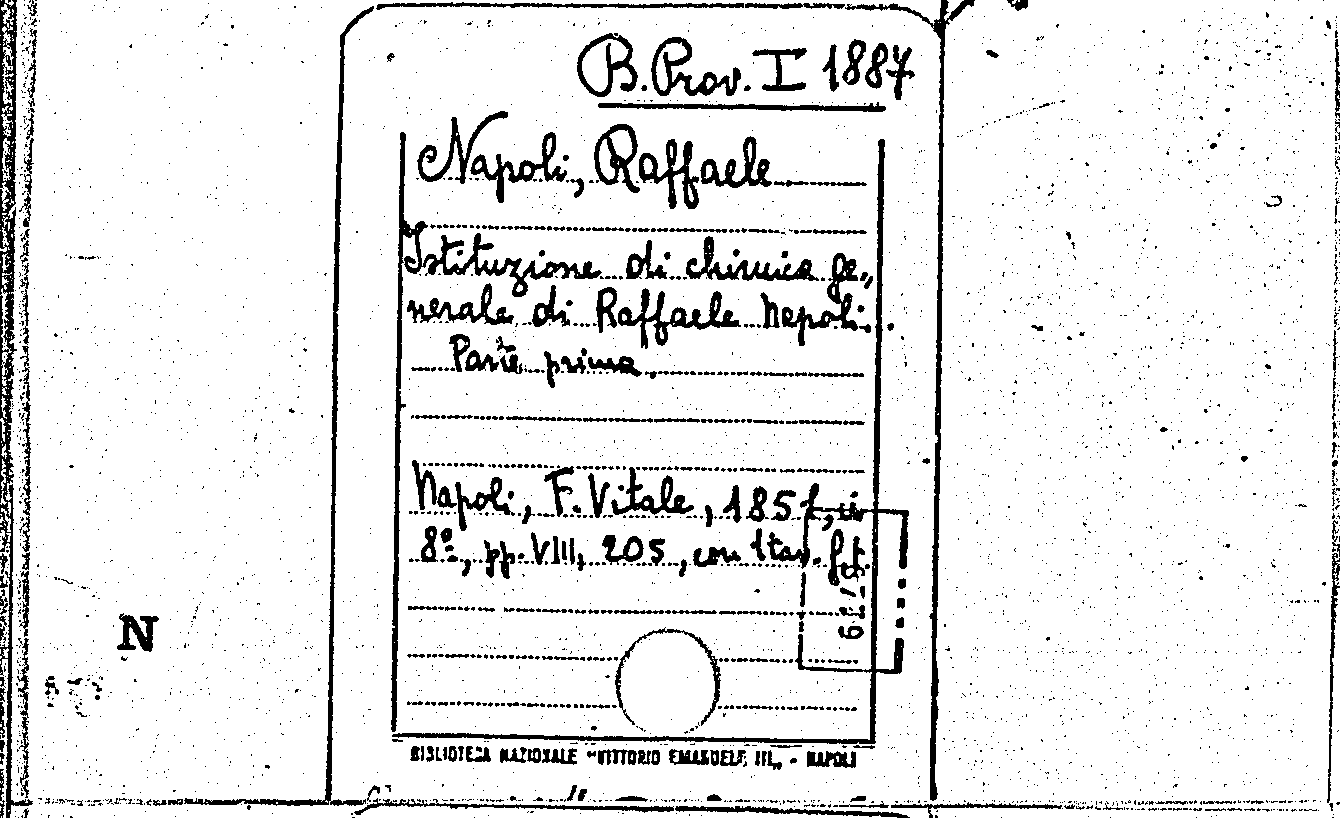 B. Prov. I 1887
Napoli, Raffaele
Istituzione di chimica ge„
nerale di Raffaele Napoli..
Parte prima.
Napoli, F. Vitale, 1851, in
8º, pp. VIII, 205, con 1 tav.
N
BIBLIOTECA NAZIONALE "VITTORIO EMANUELE III„ - NAPOLI